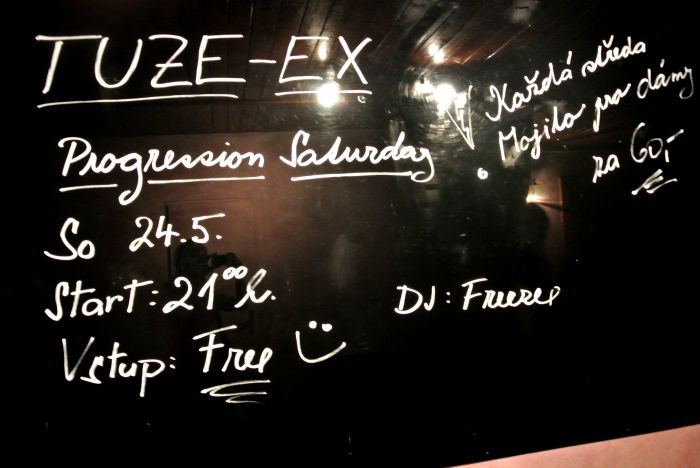 TUZE-EX
Progression Saturday
So 24.5.
Start: 21⁰⁰h.
Vstup: Free
DJ: Freeze
! Každá středa
Mojito pro dámy
za 60,-